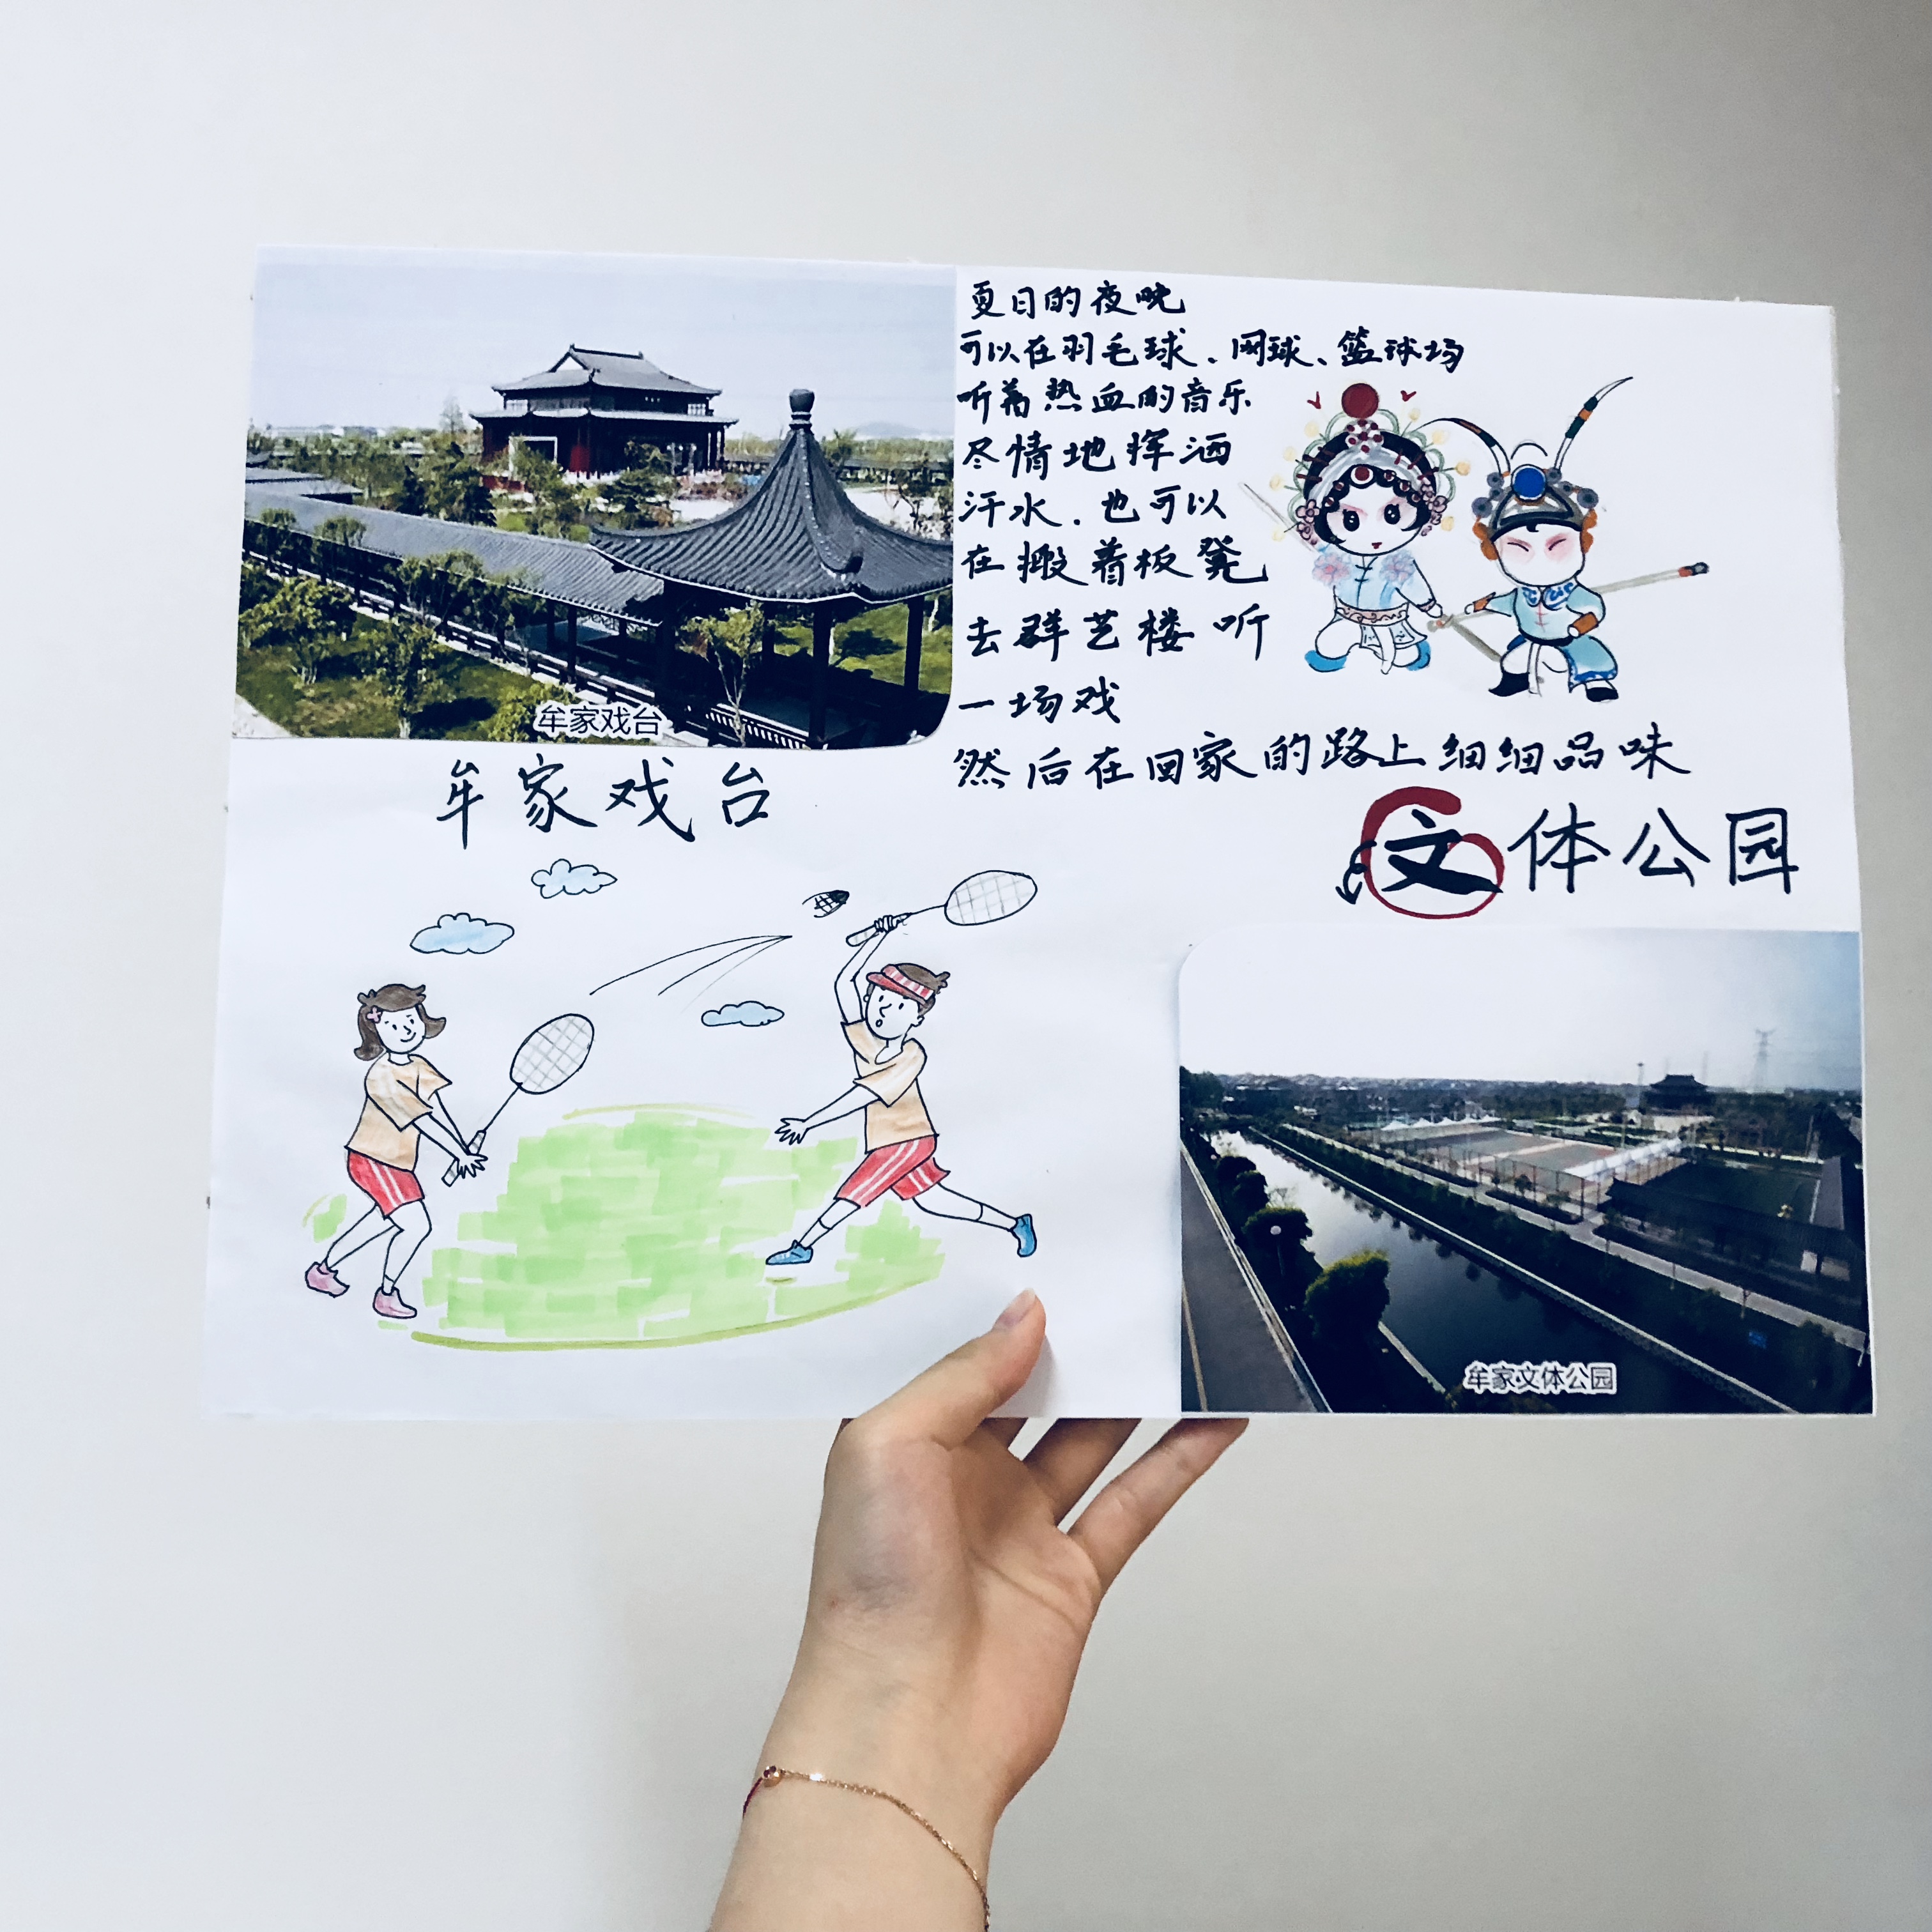 牟家戏台
牟家戏台
夏日的夜晚
可以在羽毛球、网球、篮球场
听着热血的音乐
尽情地挥洒
汗水．也可以
在搬着板凳
去群艺楼听
一场戏
然后在回家的路上细细品味
文体公园
牟家文体公园